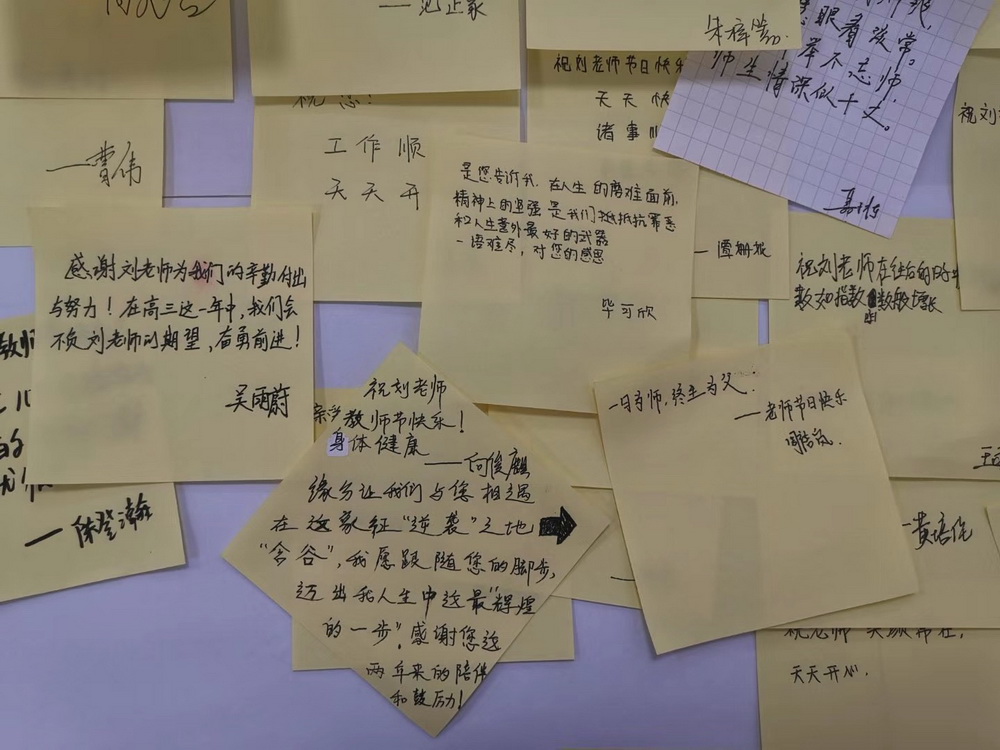 朱梓萱
祝刘老师节日快乐
天天快
诸事顺
眼看没常。
举不忘师
师生情深似十丈。
祝刘
祝您!
工作顺
天天开
——曹伟
是您告诉我,在人生的磨难面前,
精神上的坚强是我们抵抗罪恶
和人生意外最好的武器
一语难尽,对您的感恩
毕可欣
感谢刘老师为我们的辛勤付出
与努力!在高三这一年中,我们会
不负刘老师的期望,奋勇前进!
吴雨蔚
祝刘老师在往后的日子中
数如指数函数般增长
祝刘老师
亲爱
教师节快乐!
身体健康
——何俊麒
缘分让我们与您相遇
在这象征“逆袭”之地
“含谷”,我愿跟随您的脚步,
迈出我人生中这最“辉煌
的一步”。感谢您这
两年来的陪伴
和鼓励!
一日为师,终生为父!
——老师节日快乐
教师
——陈登瀚
——黄培伦
祝老师笑颜常在,
天天开心.